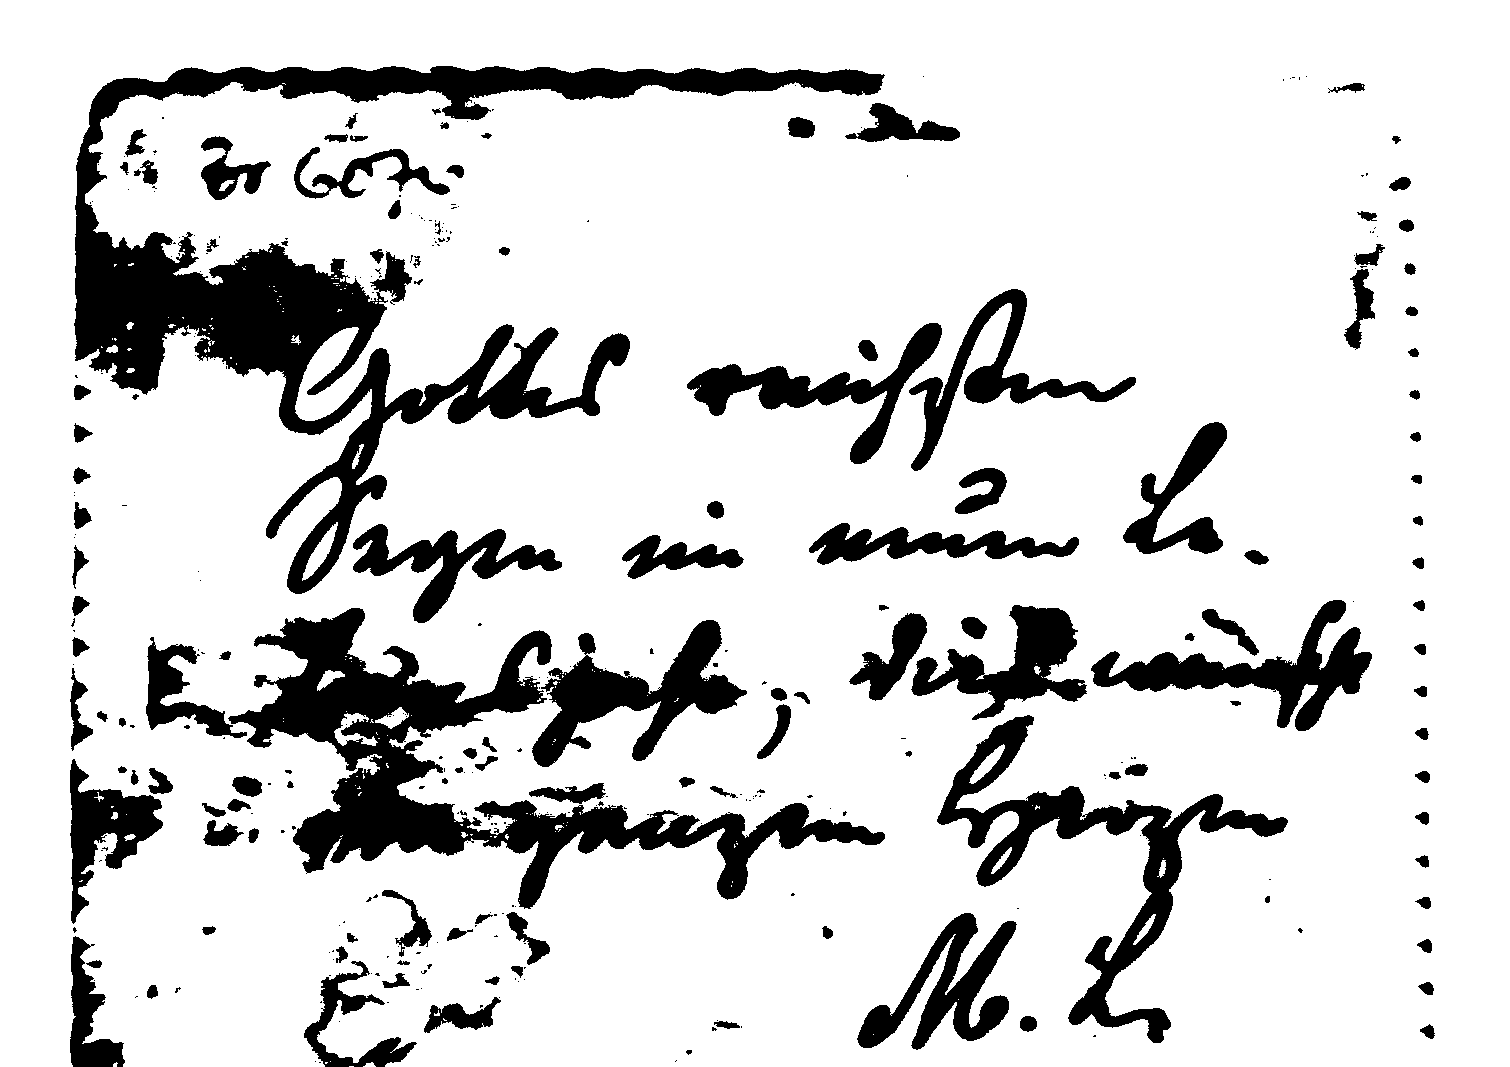 Gottes reichsten
Segen im neuen Le-
bensjahre, die wünscht
von ganzem Herzen
M. L.